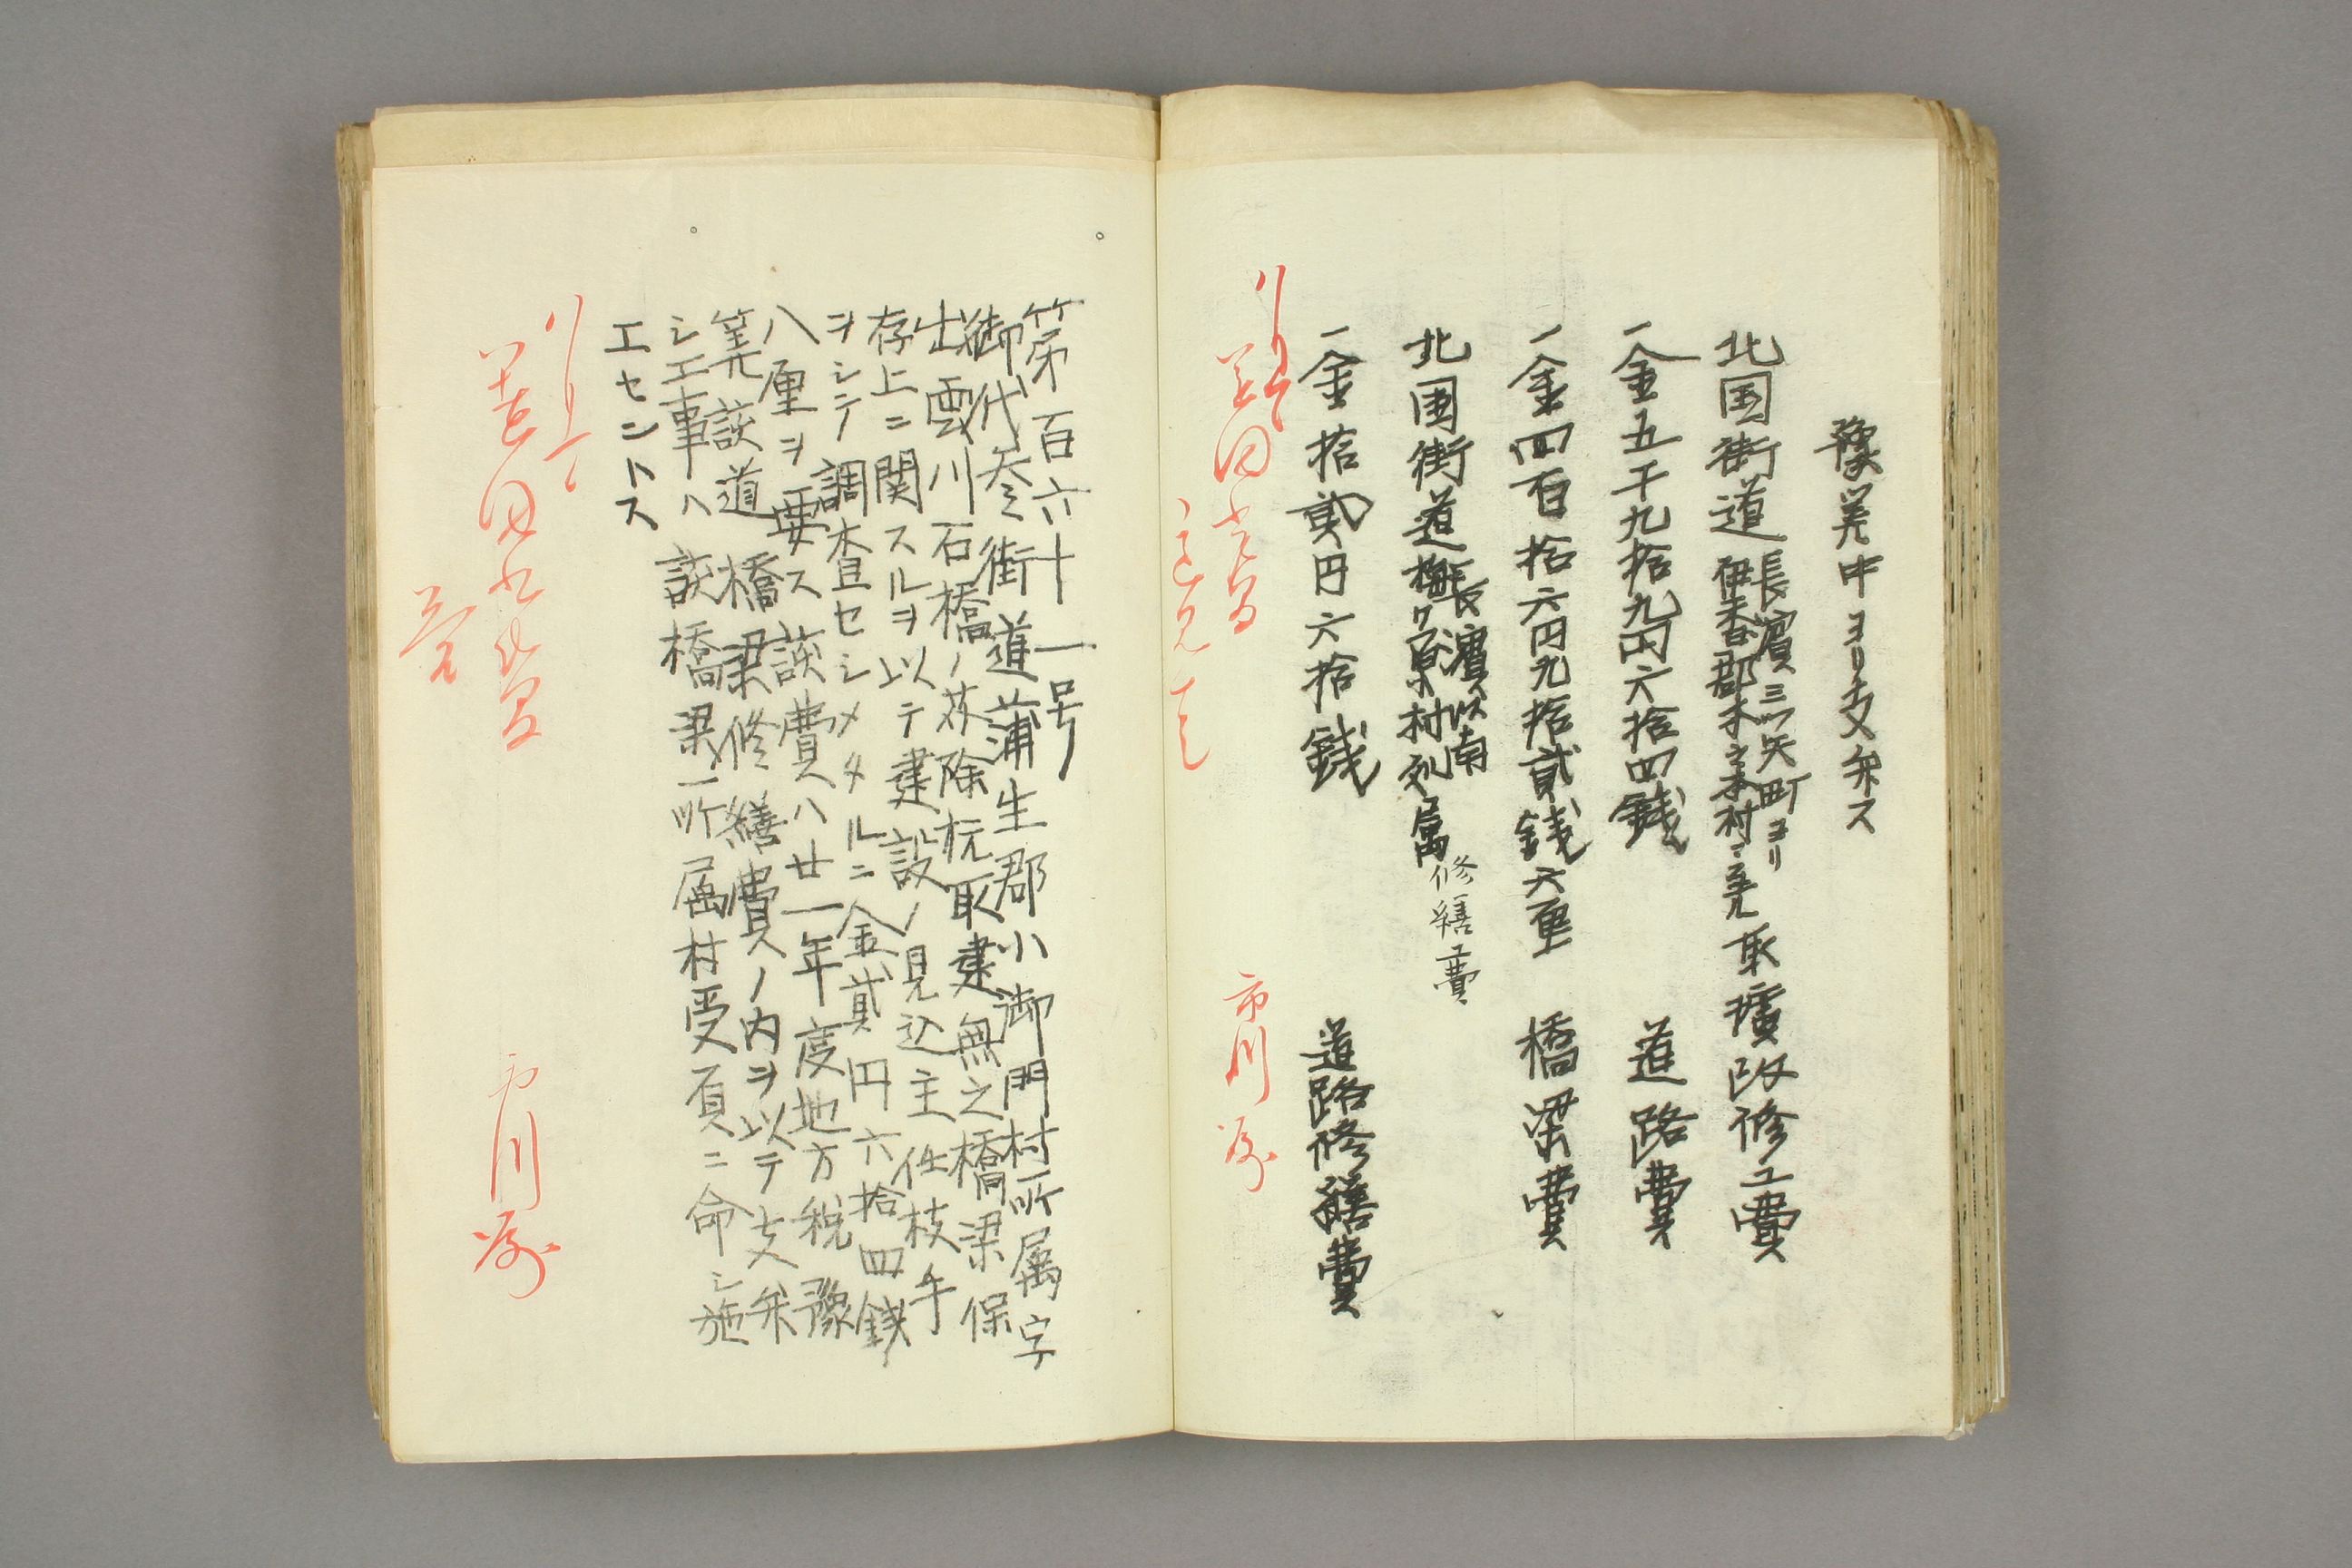 豫筭中ヨリ支弁ス
北国街道長濱三ツ矢町ヨリ伊香郡木之本村ニ至ル取擴改修工費
一金五千九拾九円六拾四銭　道路費
一金四百拾六円九拾貳銭六厘　橋梁費
北国街道長濱以南梅ケ原村列属修繕費
一金拾貳円六拾銭　道路修繕費
市川
第百六十一号
御代参街道蒲生郡小御門村所属字
出雲川石橋ノ芥除杭取建無之橋梁保
存上ニ関スルヲ以テ建設ノ見込主任枝手
ヲシテ調査セシメタルニ金貳円六拾四銭
八厘ヲ要ス該費ハ廿一年度地方税豫
筭該道橋梁修繕費ノ内ヲ以テ支弁
シ工事ハ該橋梁所属村受負ニ命シ施
工セントス
市川